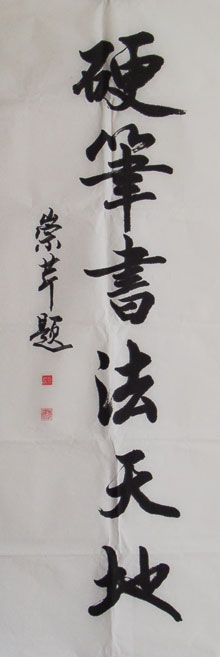 硬筆書法天地
崇芹题